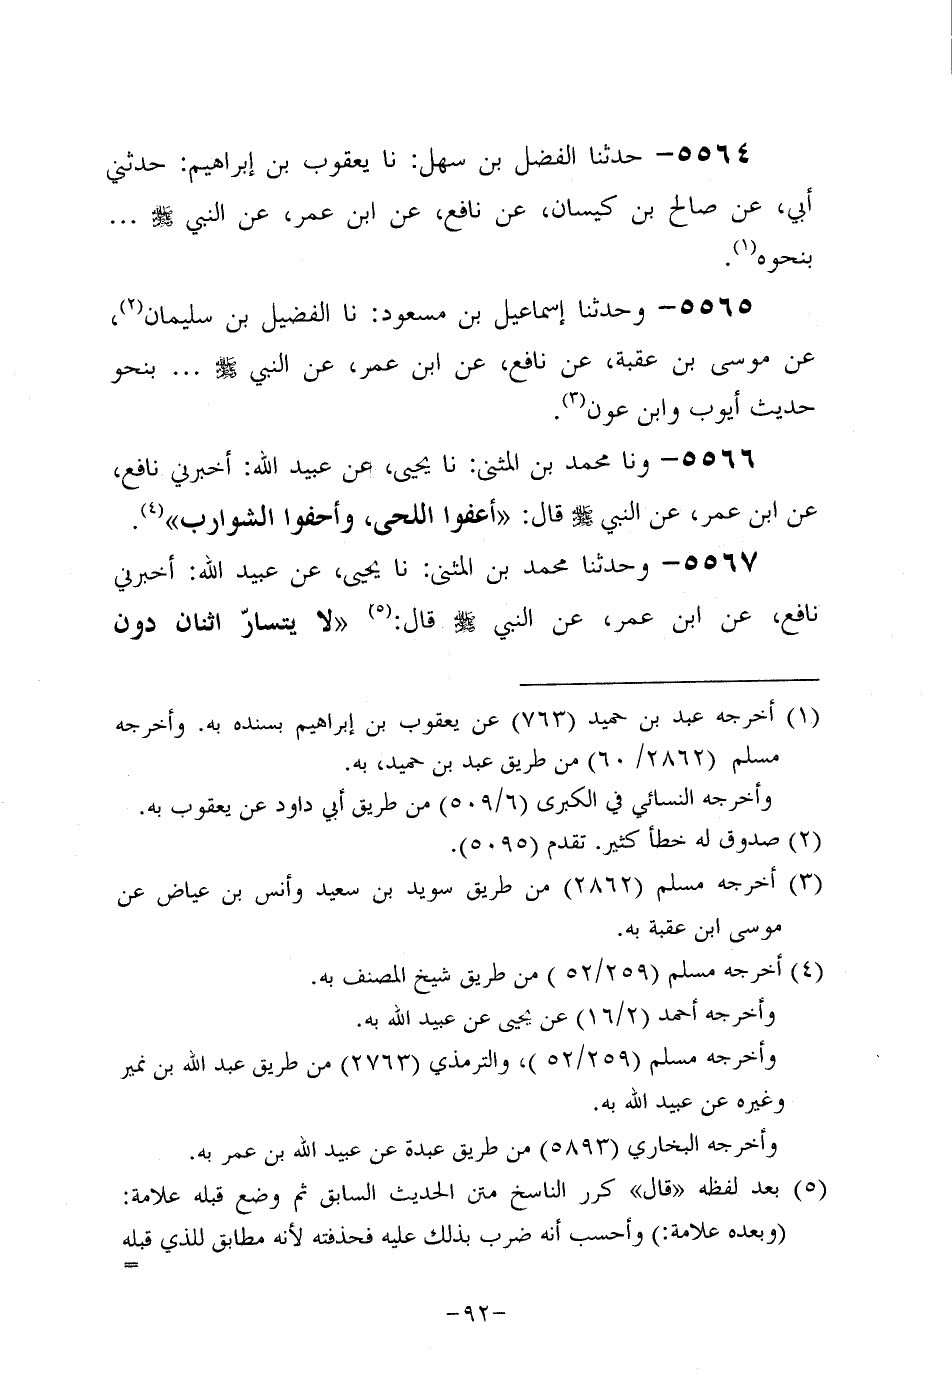 ٥٥٦٤- حدثنا الفضل بن سهل: نا يعقوب بن إبراهيم: حدثني
أبي، عن صالح بن كيسان، عن نافع، عن ابن عمر، عن النبي ﷺ ...
بنحوه(١).
٥٥٦٥- وحدثنا إسماعيل بن مسعود: نا الفضيل بن سليمان(٢)،
عن موسى بن عقبة، عن نافع، عن ابن عمر، عن النبي ﷺ ... بنحو
حديث أيوب وابن عون(٣).
٥٥٦٦- ونا محمد بن المثنى: نا يحيى، عن عبيد الله: أخبرني نافع،
عن ابن عمر، عن النبي ﷺ قال: «أعفوا اللحى، وأحفوا الشوارب»(٤).
٥٥٦٧- وحدثنا محمد بن المثنى: نا يحيى، عن عبيد الله: أخبرني
نافع، عن ابن عمر، عن النبي ﷺ قال:(٥) «لا يتسارّ اثنان دون
(١) أخرجه عبد بن حميد (٧٦٣) عن يعقوب بن إبراهيم بسنده به. وأخرجه
مسلم (٢٨٦٢/ ٦٠) من طريق عبد بن حميد، به.
وأخرجه النسائي في الكبرى (٥٠٩/٦) من طريق أبي داود عن يعقوب به.
(٢) صدوق له خطأ كثير. تقدم (٥٠٩٥).
(٣) أخرجه مسلم (٢٨٦٢) من طريق سويد بن سعيد وأنس بن عياض عن
موسى ابن عقبة به.
(٤) أخرجه مسلم (٥٢/٢٥٩ ) من طريق شيخ المصنف به.
وأخرجه أحمد (١٦/٢) عن يحيى عن عبيد الله به.
وأخرجه مسلم (٥٢/٢٥٩ )، والترمذي (٢٧٦٣) من طريق عبد الله بن نمير
وغيره عن عبيد الله به.
وأخرجه البخاري (٥٨٩٣) من طريق عبدة عن عبيد الله بن عمر به.
(٥) بعد لفظه «قال» كرر الناسخ متن الحديث السابق ثم وضع قبله علامة:
(وبعده علامة:) وأحسب أنه ضرب بذلك عليه فحذفته لأنه مطابق للذي قبله
=
-٩٢-